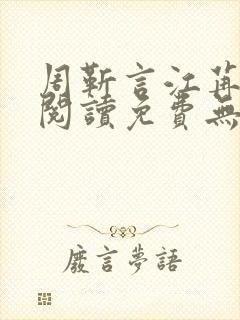 周靳言江苒
閱讀免費無
廢言夢語